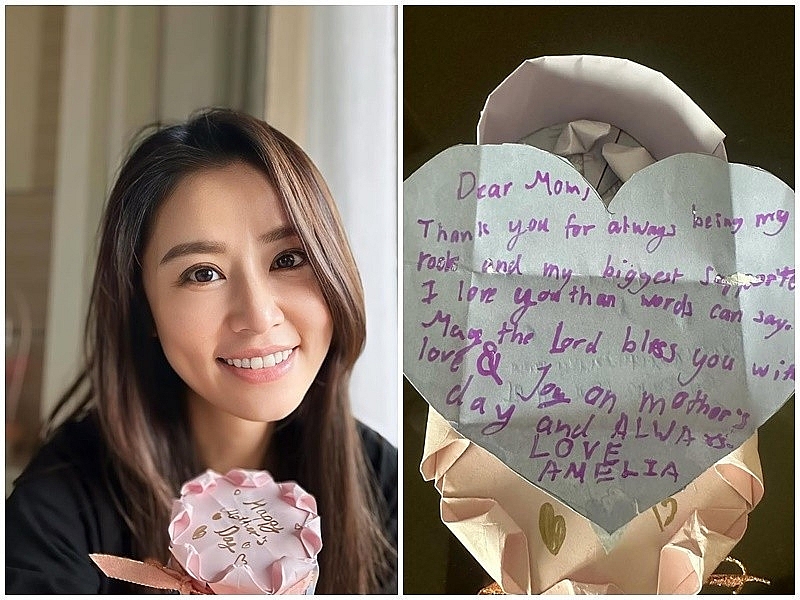 Happy
Mother's
Day
Dear Mom,
Thank you for always being my
and my biggest
I love you than words can say.
May the Lord bless you with
love & Joy on mother's
day and ALWAYS
LOVE
AMELIA